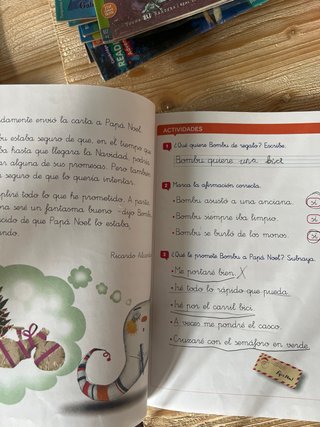 READ
damente envió la carta a Papá Noel.
bu estaba seguro de que, en el tiempo que
ba hasta que llegara la Navidad, podría
ar alguna de sus promesas. Pero también
a seguro de que lo quería intentar.
pliré todo lo que he prometido. A partir
na seré un fantasma bueno -dijo Bombu
cido de que Papá Noel lo estaba
ndo.
Ricardo
ACTIVIDADES
1 ¿Qué quiere Bombu de regalo? Escribe.
Bombu quiere una bici
2 Marca la afirmación correcta.
Bombu asustó a una anciana. sí
Bombu siempre iba limpio. sí
Bombu se burló de los monos. sí
3 ¿Qué le promete Bombu a Papá Noel? Subraya.
• Me portaré bien. X
• Iré todo lo rápido que pueda.
• Iré por el carril bici.
• A veces me pondré el casco.
• Cruzaré con el semáforo en verde.